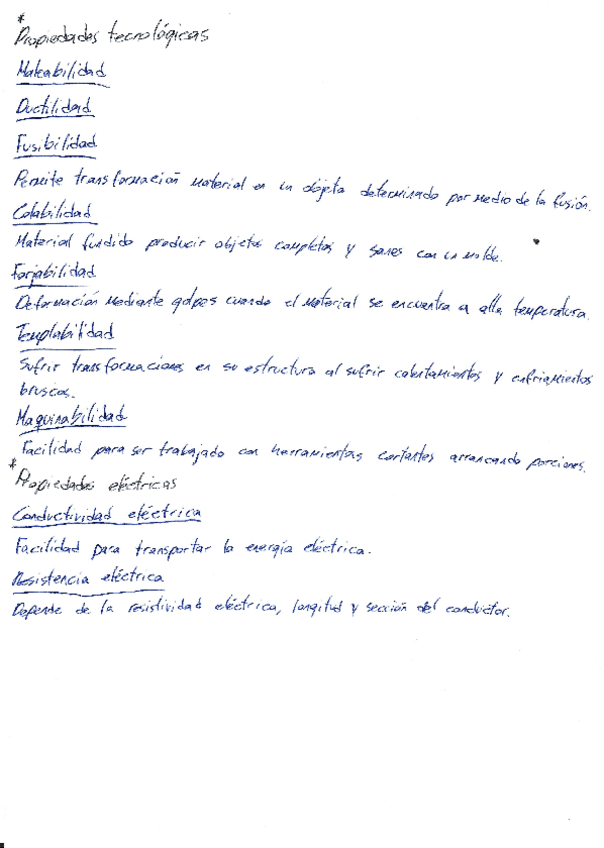 *
Propiedades tecnológicas
Maleabilidad
Ductilidad
Fusibilidad
Permite transformación material en un objeto determinado por medio de la fusión.
Colabilidad
Material fundido producir objetos completos y sanos con un molde.
Forjabilidad
Deformación mediante golpes cuando el material se encuentra a alta temperatura.
Templabilidad
Sufrir transformaciones en su estructura al sufrir calentamientos y enfriamientos
bruscos.
Maquinabilidad
Facilidad para ser trabajado con herramientas cortantes arrancando porciones.
*
Propiedades eléctricas
Conductividad eléctrica
Facilidad para transportar la energía eléctrica.
Resistencia eléctrica
Depende de la resistividad eléctrica, longitud y sección del conductor.